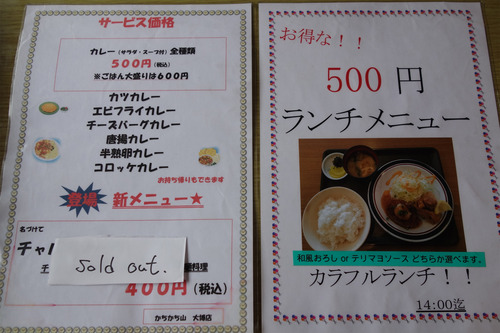 サービス価格
カレー(サラダ・スープ付)全種類
500円(税込)
※ごはん大盛りは600円
カツカレー
エビフライカレー
チーズバーグカレー
唐揚カレー
半熟卵カレー
コロッケカレー
お持ち帰りもできます
登場 新メニュー★
名づけて
チャ
Sold out.
料理
400円(税込)
かちかち山 大博店
お得な!!
500円
ランチメニュー
和風おろし or テリマヨソース どちらか選べます。
カラフルランチ!!
14:00迄